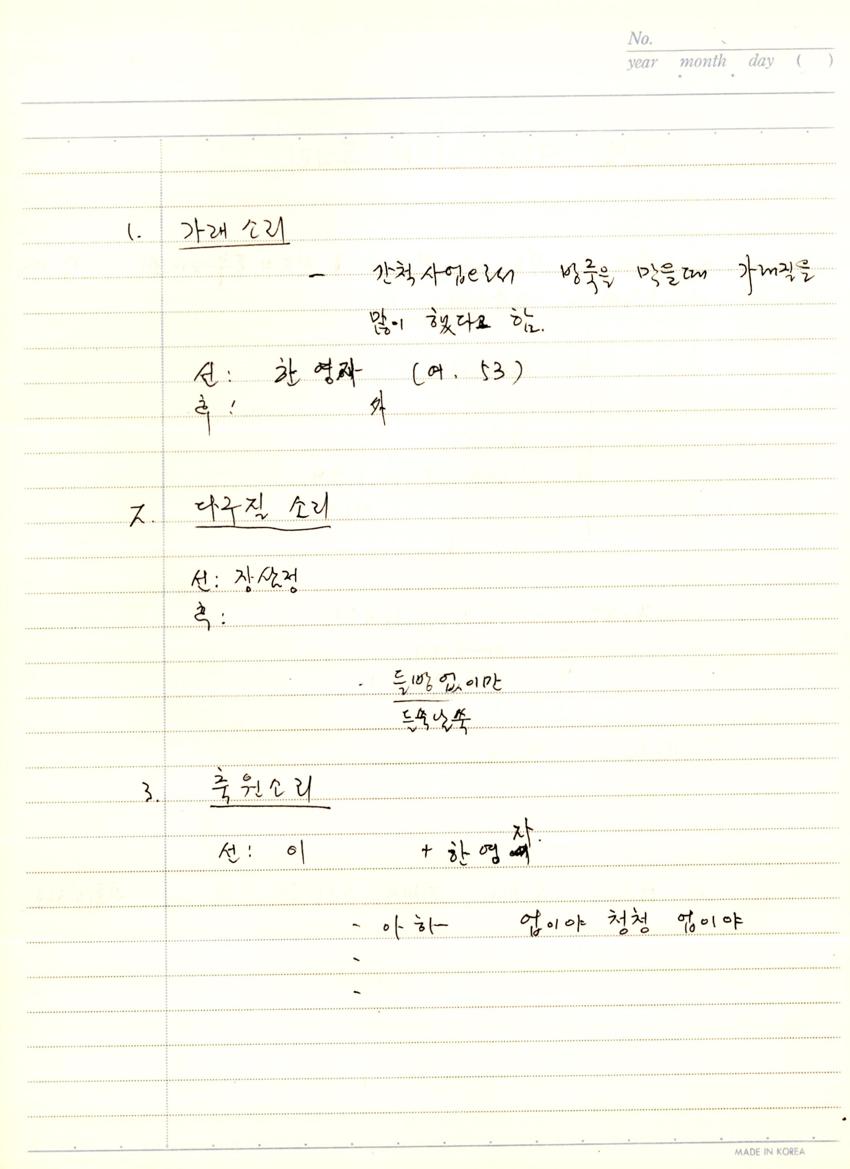 No.
year month day ( )
1. 가래 소리
- 간척사업으로서 방죽을 막을때 가래질을
많이 했다고 함.
선: 한영자 (여. 53)
후: 外
2. 다구질 소리
선: 장산정
후:
· 들방 없이만
들쑥날쑥
3. 축원소리
선: 이 + 한영자.
- 아하 - 업이야 청청 업이야
-
-
MADE IN KOREA